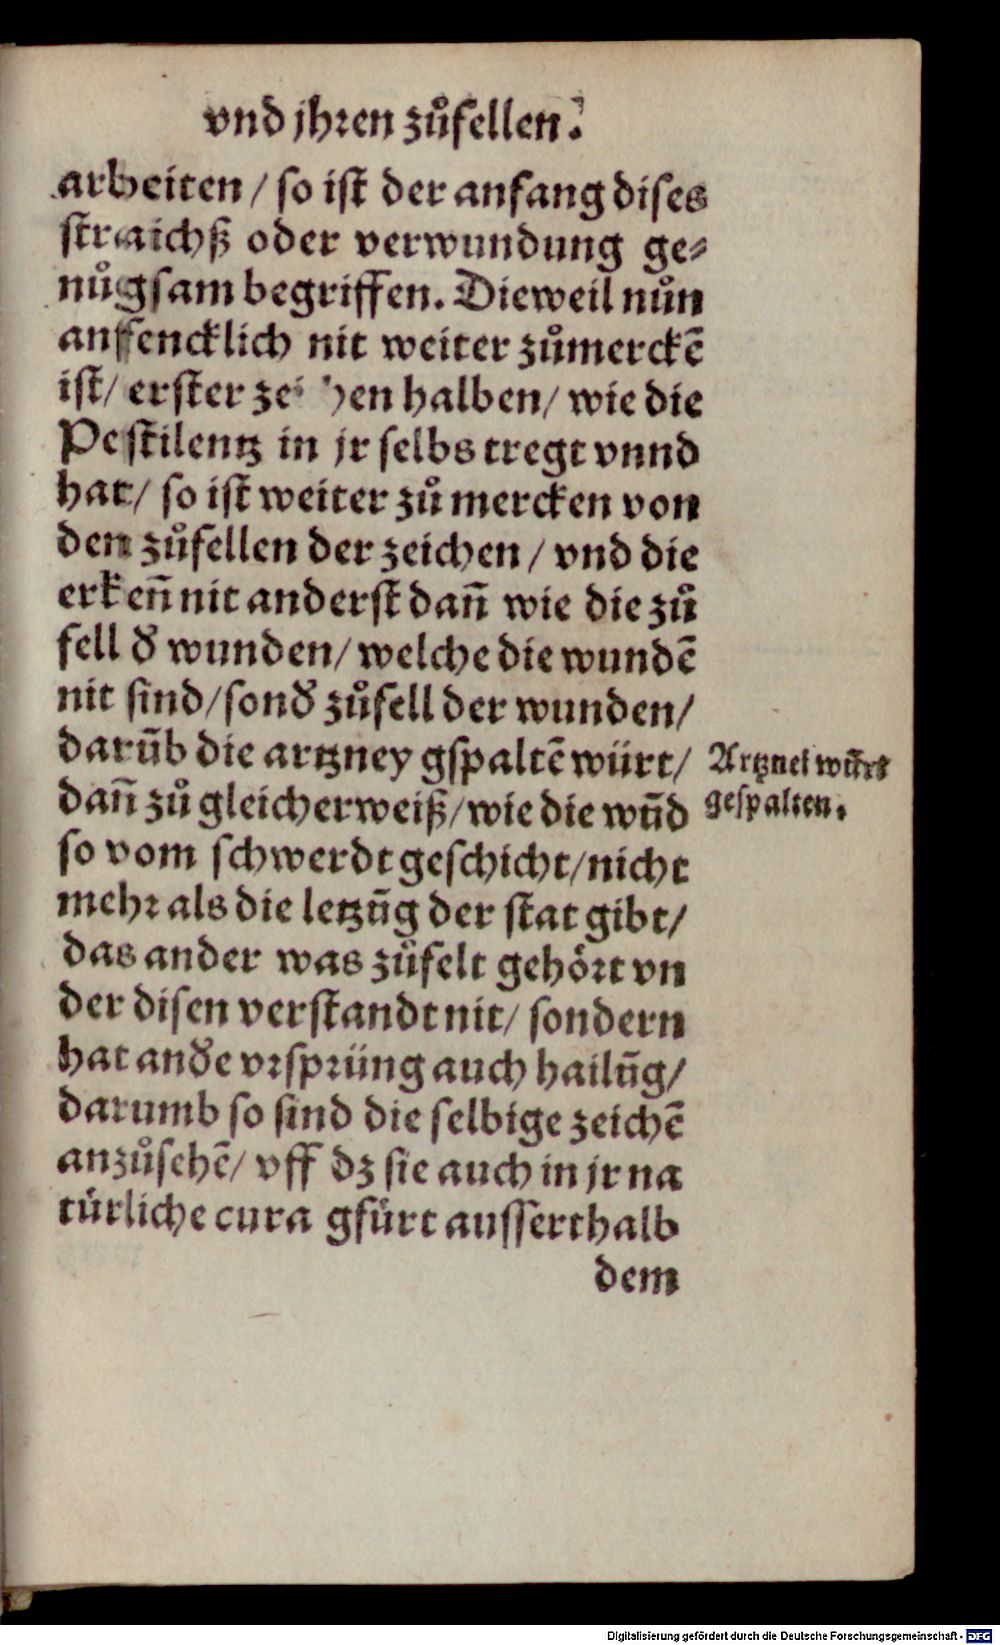 vnd jhren zůfellen.
arbeiten / so ist der anfang dises
straichß oder verwundung ge⸗
nůgsam begriffen. Dieweil nůn
anffencklich nit weiter zůmerckē
ist / erster zeichen halben / wie die
Pestilentz in jr selbs tregt vnnd
hat / so ist weiter zů mercken von
den zůfellen der zeichen / vnd die
erkeñ nit anderst dañ wie die zů
fell d̕ wunden / welche die wundē
nit sind / sond̕ zůfell der wunden /
darūb die artzney gspaltē würt /
Artznei wūrt
dañ zů gleicher weiß / wie die wūd
gespalten.
so vom schwerdt geschicht / nicht
mehr als die letzūg der stat gibt /
das ander was zůfelt gehört vn
der disen verstandt nit / sondern
hat and̕e vrsprüng auch hailūg /
darumb so sind die selbige zeichē
anzůsehē / vff dz sie auch in jr na
türliche cura gfürt ausserthalb
dem
Digitalisierung gefördert durch die Deutsche Forschungsgemeinschaft - DFG